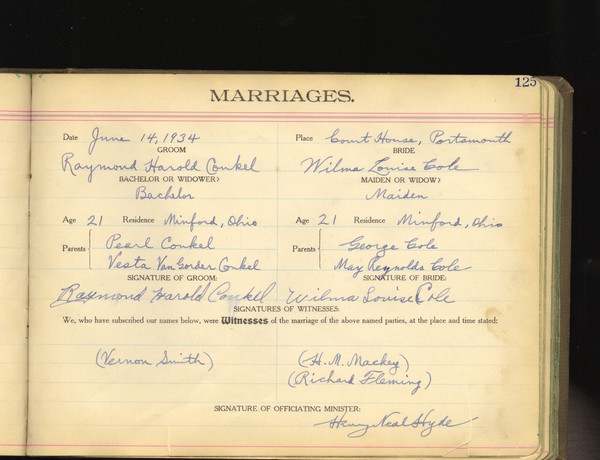 125
MARRIAGES.
Date June 14, 1934 Place Court House, Portsmouth
GROOM BRIDE
Raymond Harold Conkel Wilma Louise Cole
BACHELOR OR WIDOWER? MAIDEN OR WIDOW?
Bachelor Maiden
Age 21 Residence Minford, Ohio Age 21 Residence Minford, Ohio
Parents Pearl Conkel Parents George Cole
Vesta VanGorder Conkel May Reynolds Cole
SIGNATURE OF GROOM: SIGNATURE OF BRIDE:
Raymond Harold Conkel Wilma Louise Cole
SIGNATURES OF WITNESSES:
We, who have subscribed our names below, were Witnesses of the marriage of the above named parties, at the place and time stated:
(Vernon Smith) (H. M. Mackey)
(Richard Fleming)
SIGNATURE OF OFFICIATING MINISTER:
Henry Neal Hyde